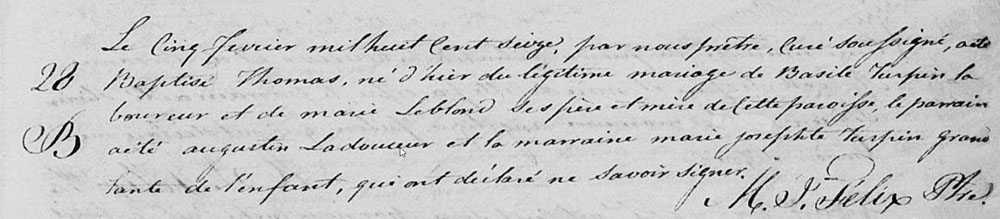 Le Cinq fevrier mil huit Cent Seize, par nous prêtre, Curé Soussigné, a été
28 Baptisé Thomas, né d'hier du légitime mariage de Basile Turpin la
boureur et de marie Leblond ses père et mère de Cette paroisse, le parrain
B a été augustin Ladouceur et la marraine marie josephte Turpin grand
tante de l'enfant, qui ont déclaré ne savoir signer.
M. J. Félix Ptre.